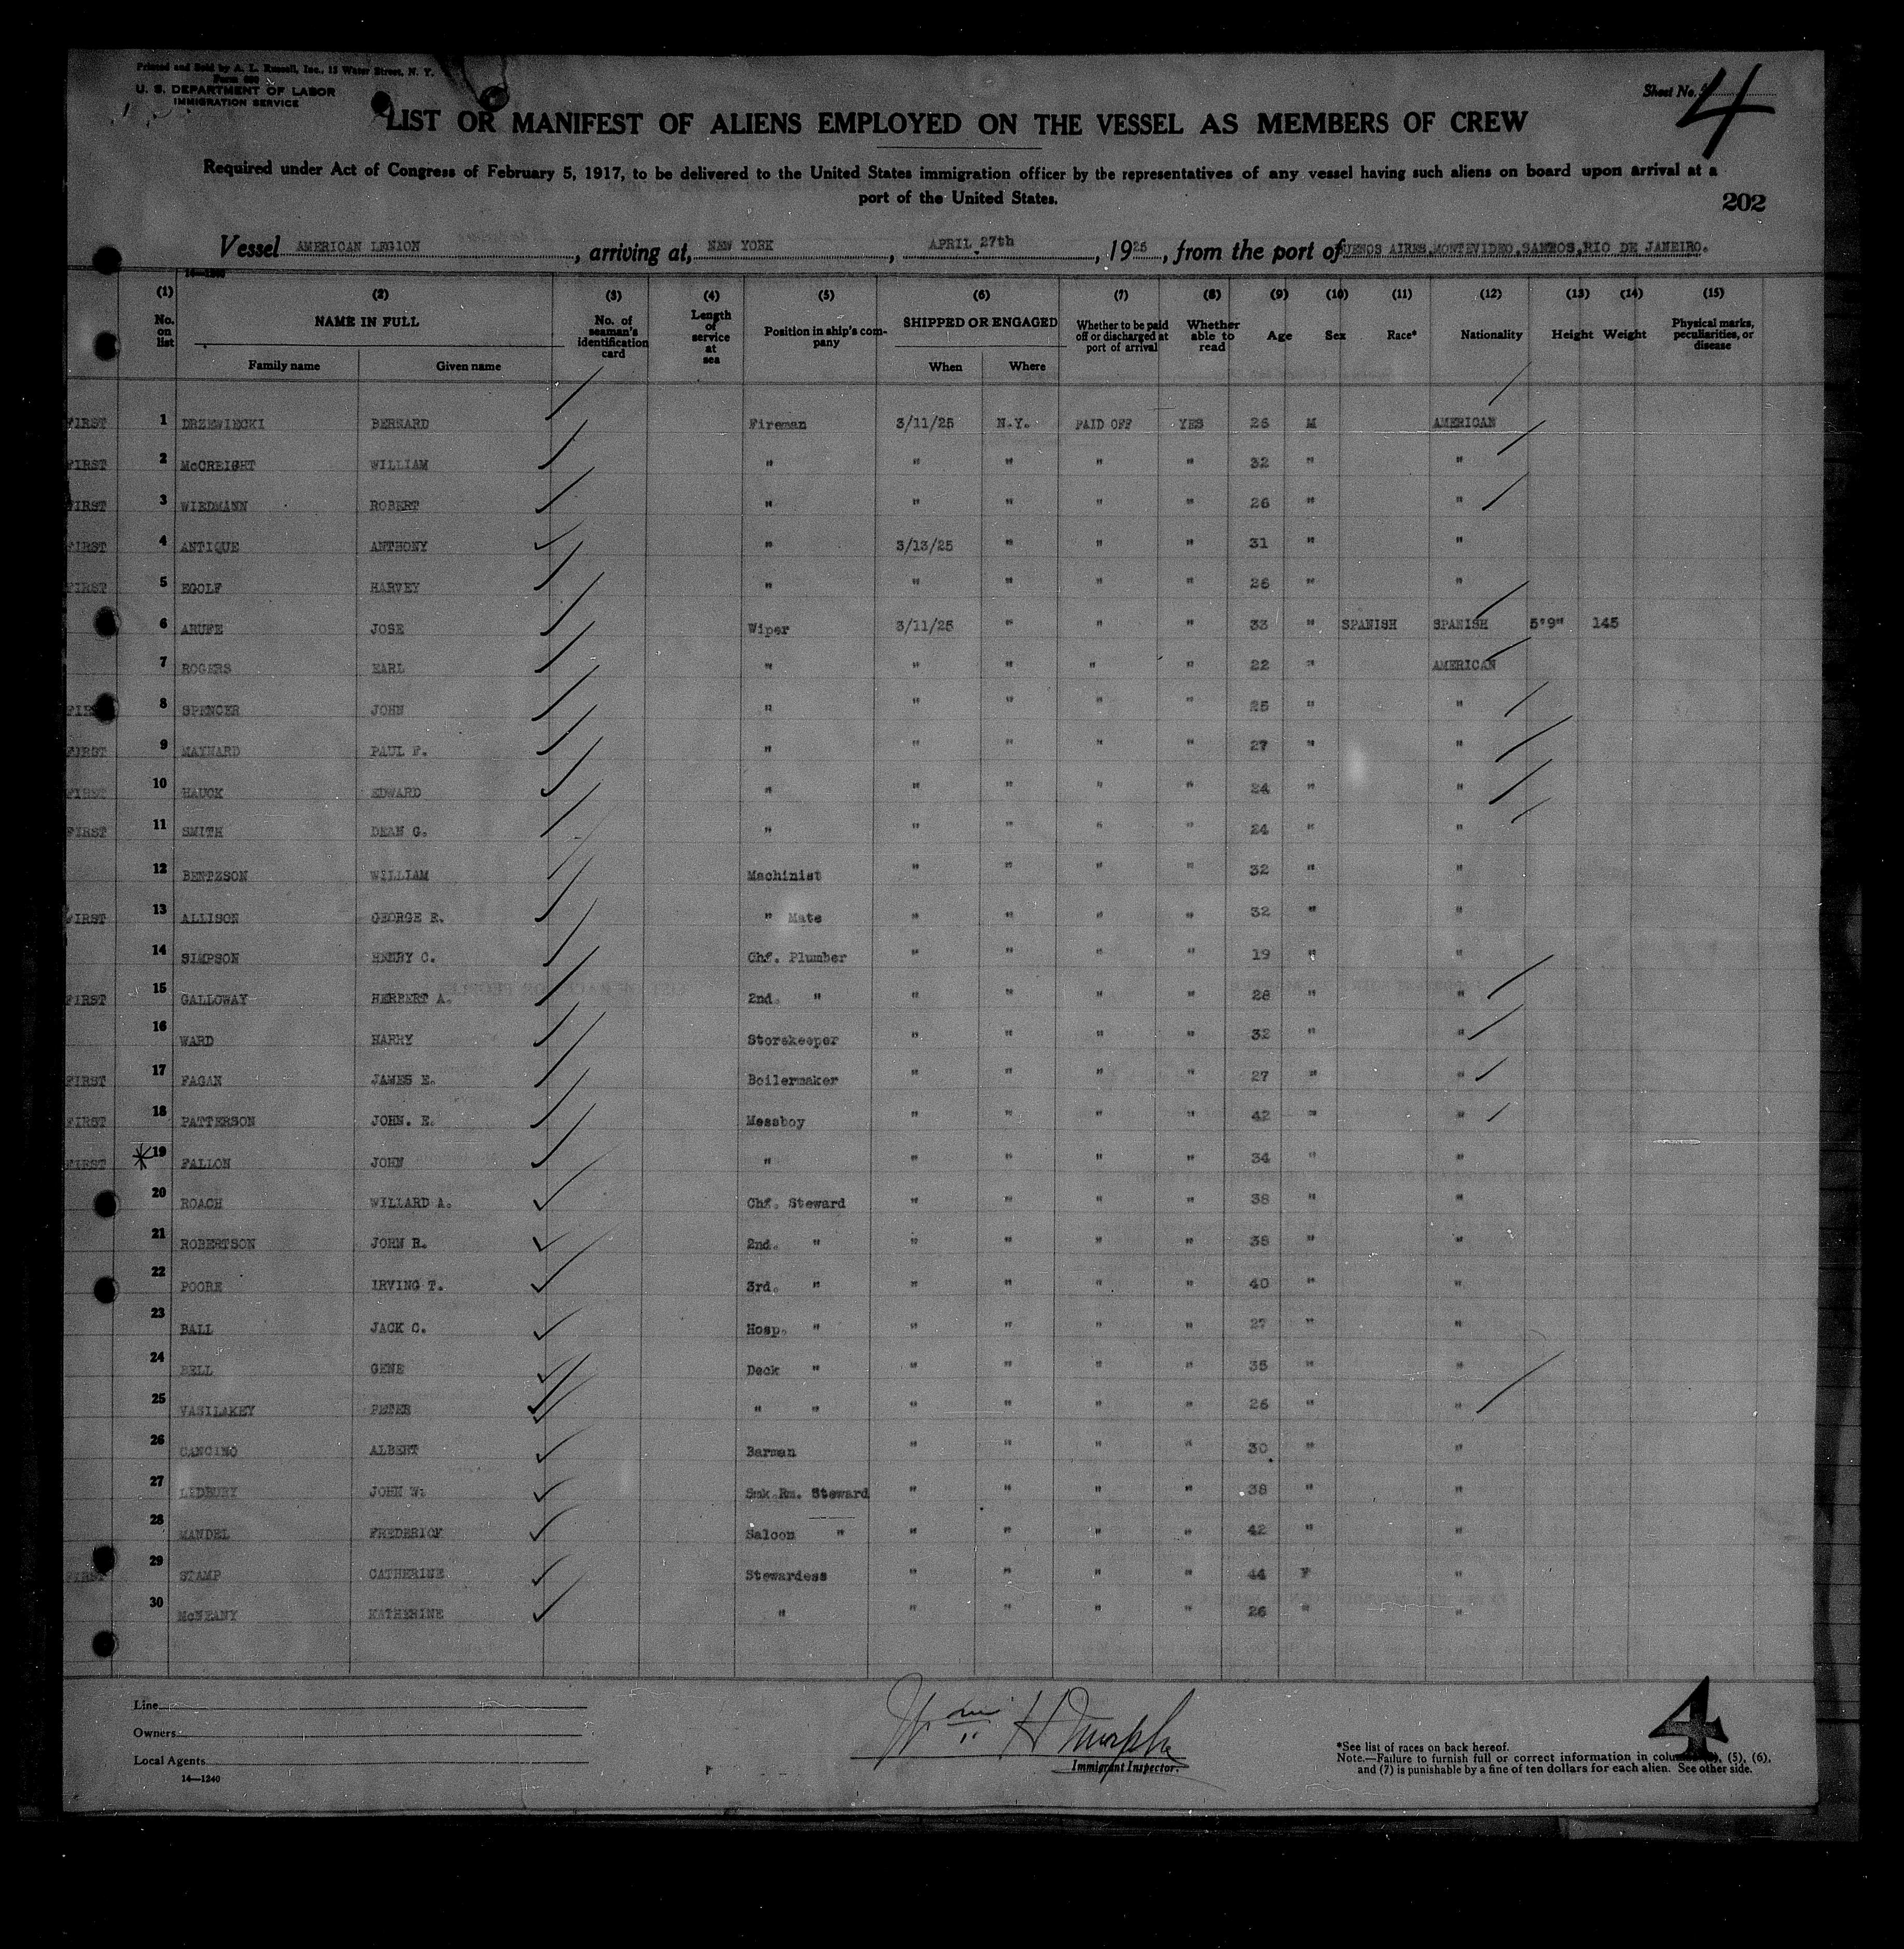 Printed and Sold by A. L. Russell, Inc., 15 Water Street, N. Y.
Form 680
U. S. DEPARTMENT OF LABOR
IMMIGRATION SERVICE
Sheet No. 4
LIST OR MANIFEST OF ALIENS EMPLOYED ON THE VESSEL AS MEMBERS OF CREW
Required under Act of Congress of February 5, 1917, to be delivered to the United States immigration officer by the representatives of any vessel having such aliens on board upon arrival at a
port of the United States.
202
Vessel AMERICAN LEGION, arriving at, NEW YORK, APRIL 27th, 1925, from the port of BUENOS AIRES,MONTEVIDEO,SANTOS,RIO DE JANEIRO.
14—1240
(1) (2) (3) (4) (5) (6) (7) (8) (9) (10) (11) (12) (13) (14) (15)
No. on list NAME IN FULL Family name Given name No. of seaman's identification card Length of service at sea Position in ship's company SHIPPED OR ENGAGED When Where Whether to be paid off or discharged at port of arrival Whether able to read Age Sex Race* Nationality Height Weight Physical marks, peculiarities, or disease
FIRST 1 DRZEWIECKI BERNARD Fireman 3/11/25 N.Y. PAID OFF YES 26 M AMERICAN
FIRST 2 McCREIGHT WILLIAM " " " " " 32 " "
FIRST 3 WIEDMANN ROBERT " " " " " 26 " "
FIRST 4 ANTIQUE ANTHONY " 3/13/25 " " " 31 " "
FIRST 5 EGOLF HARVEY " " " " " 26 " "
6 ARUFE JOSE Wiper 3/11/25 " " " 33 " SPANISH SPANISH 5'9" 145
7 ROGERS EARL " " " " " 22 " AMERICAN
FIRST 8 SPENCER JOHN " " " " " 25 " "
FIRST 9 MAYNARD PAUL F. " " " " " 27 " "
FIRST 10 HAUCK EDWARD " " " " " 24 " "
FIRST 11 SMITH DEAN G. " " " " " 24 " "
12 BENTZSON WILLIAM Machinist " " " " 32 " "
FIRST 13 ALLISON GEORGE E. " Mate " " " " 32 " "
14 SIMPSON HENRY C. Chf. Plumber " " " " 19 " "
FIRST 15 GALLOWAY HERBERT A. 2nd. " " " " " 28 " "
16 WARD HARRY Storekeeper " " " " 32 " "
FIRST 17 FAGAN JAMES E. Boilermaker " " " " 27 " "
FIRST 18 PATTERSON JOHN. E. Messboy " " " " 42 " "
FIRST 19 FALLON JOHN " " " " " 34 " "
20 ROACH WILLARD A. Chf. Steward " " " " 38 " "
21 ROBERTSON JOHN R. 2nd. " " " " " 38 " "
22 POORE IRVING T. 3rd. " " " " " 40 " "
23 BALL JACK C. Hosp. " " " " " 27 " "
24 BELL GENE Deck " " " " " 35 " "
25 VASILAKEY PETER " " " " " " 26 " "
26 CANCINO ALBERT Barman " " " " 30 " "
27 LEDBURY JOHN W. Smk.Rm. Steward " " " " 38 " "
28 MANDEL FREDERICK Saloon " " " " " 42 " "
FIRST 29 STAMP CATHERINE Stewardess " " " " 44 F "
30 McNEANY KATHERINE " " " " " 26 " "
Line
Owners
Local Agents
14—1240
Wm H Murphy
Immigrant Inspector.
4
*See list of races on back hereof.
Note.—Failure to furnish full or correct information in columns (5), (6),
and (7) is punishable by a fine of ten dollars for each alien. See other side.